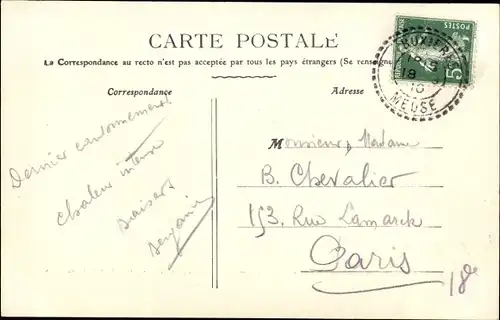 CARTE POSTALE
La Correspondance au recto n'est pas acceptée par tous les pays étrangers (Se renseigne
Correspondance
Adresse
POSTES
5
MEUSE
Dernier cantonnement
Chaleur intense
Baisers
Benjamin
Monsieur, Madame
B. Chevalier
153, Rue Lamarck
Paris
18e